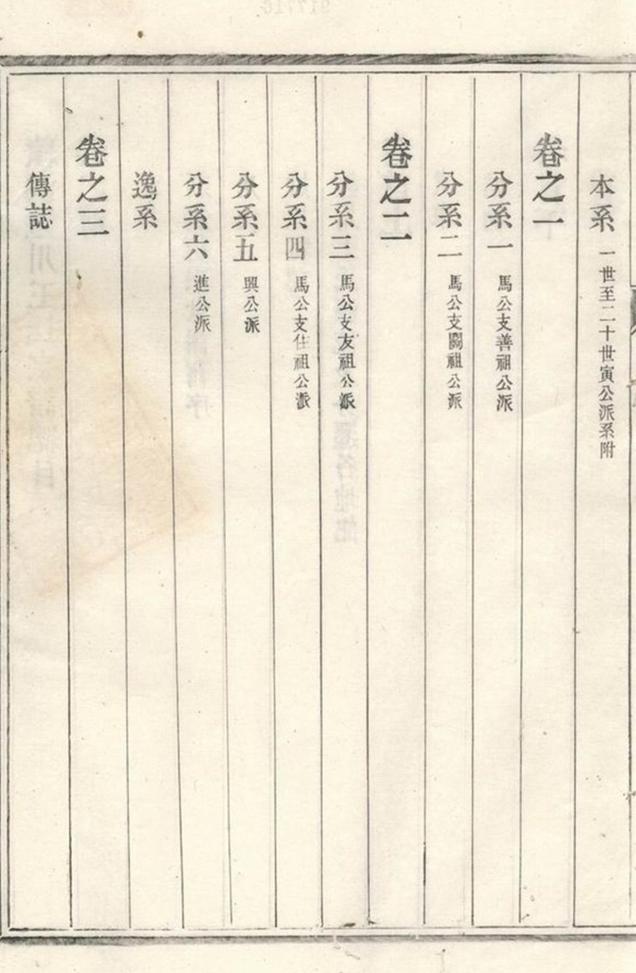 本系 一世至二十世寅公派系附
卷之一
分系一 馬公支善祖公派
分系二 馬公支關祖公派
卷之二
分系三 馬公支友祖公派
分系四 馬公支住祖公派
分系五 興公派
分系六 進公派
逸系
卷之三
傳誌